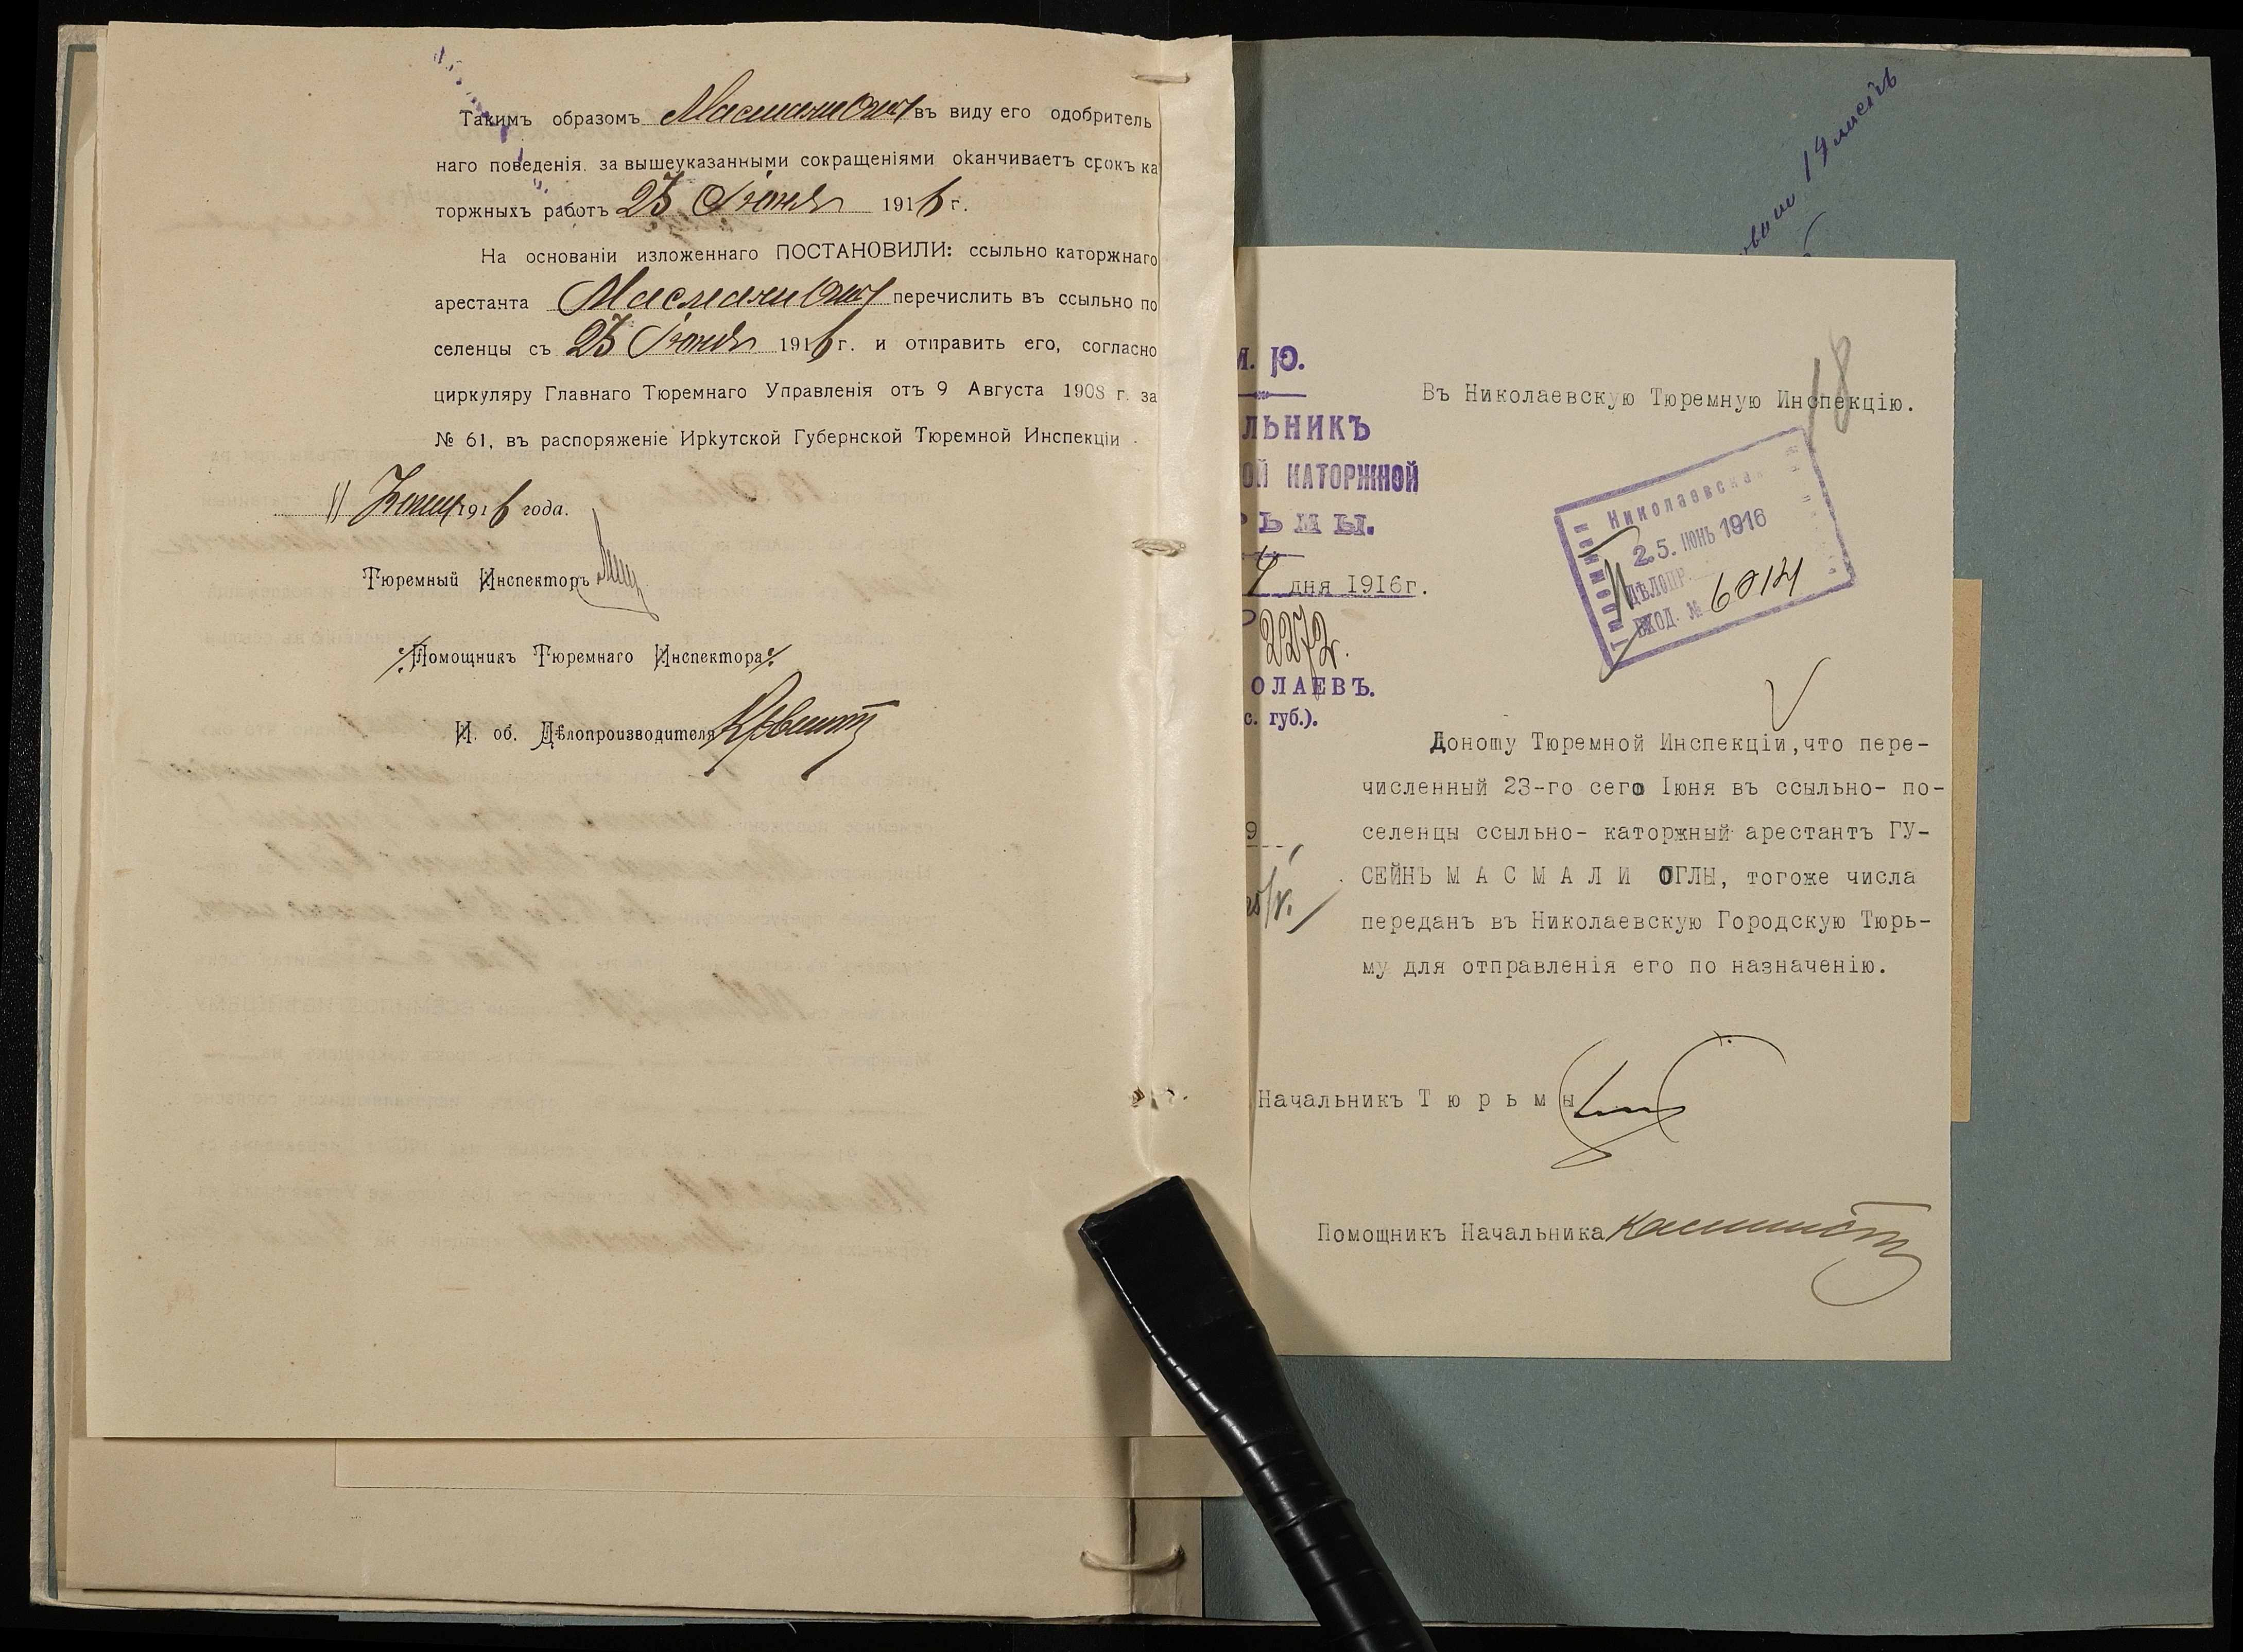 Такимъ образомъ Масмали Оглы въ виду его одобритель
наго поведенія. за вышеуказанными сокращеніями оканчиваетъ срокъ ка
торжныхъ работъ 23 Іюня 1916 г.
На основаніи изложеннаго ПОСТАНОВИЛИ: ссыльно каторжнаго
арестанта Масмали Оглы перечислить въ ссыльно по
селенцы съ 23 Іюня 1916 г. и отправить его, согласно
циркуляру Главнаго Тюремнаго Управленія отъ 9 Августа 1908 г. за
№ 61, въ распоряженіе Иркутской Губернской Тюремной Инспекціи
11 Іюня 1916 года.
Тюремный Инспекторъ
Помощникъ Тюремнаго Инспектора
И. об. Дѣлопроизводителя
19 листѣ
18
Ю.
ЛЬНИКЪ
ОЙ КАТОРЖНОЙ
ЬМЫ.
дня 1916г.
2272.
ОЛАЕВЪ.
с. губ.).
Въ Николаевскую Тюремную Инспекцію.
Николаевская
Тюремная
25. ІЮНЬ 1916
ДѢЛОПР.
ВХОД. № 6014
Доношу Тюремной Инспекціи,что пере-
численный 23-го сего Іюня въ ссыльно- по-
селенцы ссыльно- каторжный арестантъ ГУ-
СЕЙНЪ М А С М А Л И ОГЛЫ, тогоже числа
переданъ въ Николаевскую Городскую Тюрь-
му для отправленія его по назначенію.
9
Начальникъ Т ю р ь м ы
Помощникъ Начальника